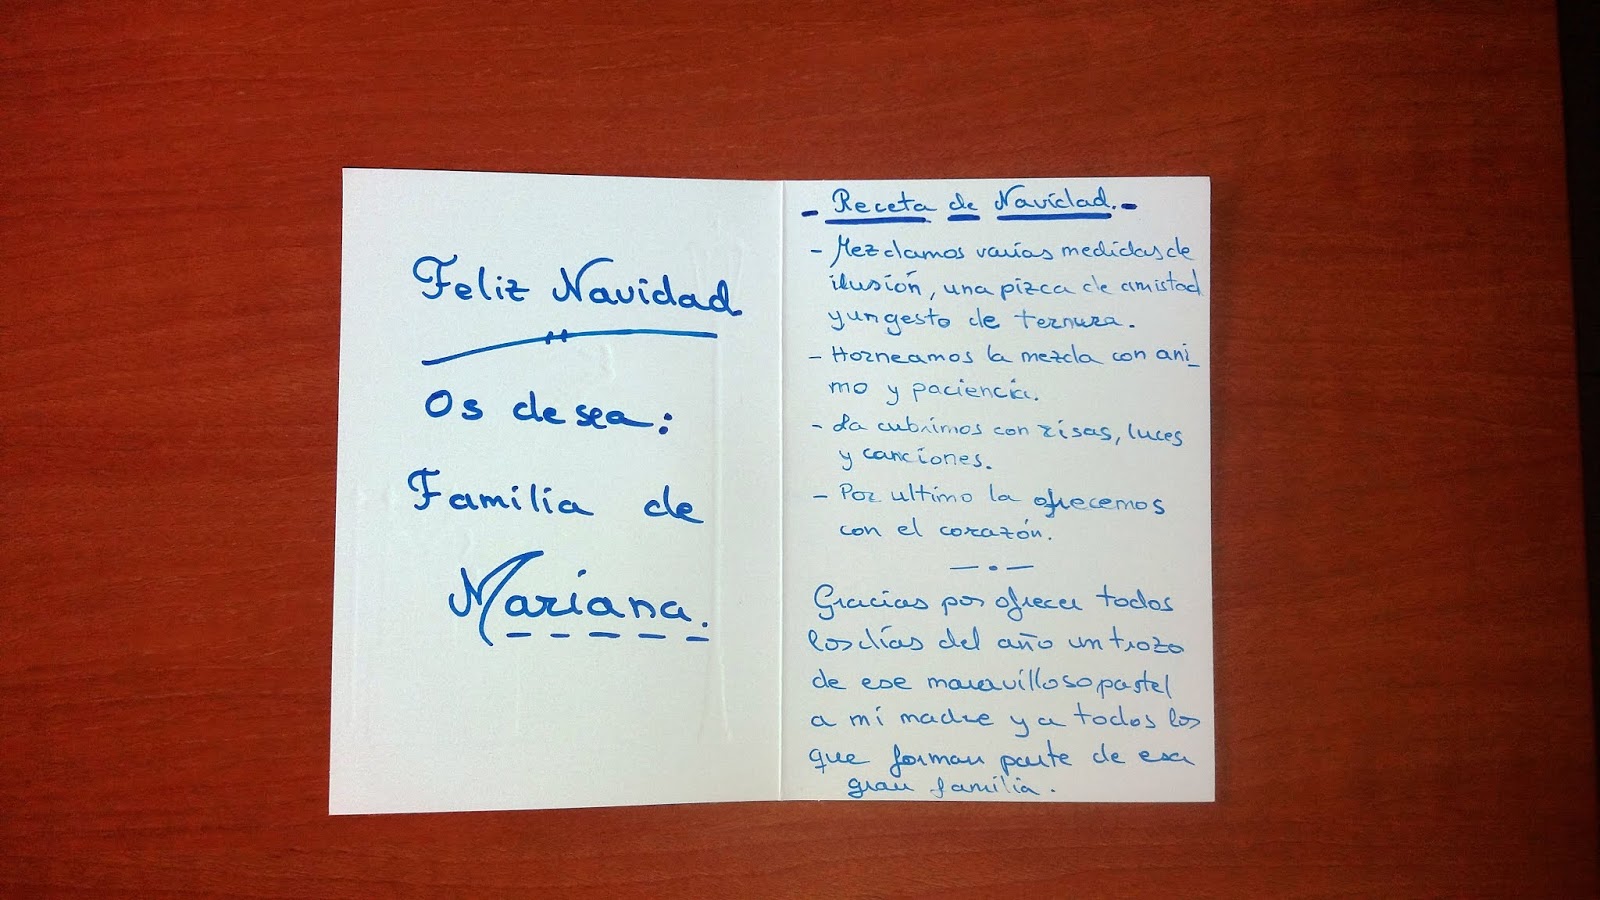 Feliz Navidad
Os desea:
Familia de
Mariana.
- Receta de Navidad. -
- Mezclamos varias medidas de
ilusión, una pizca de amistad
y un gesto de ternura.
- Horneamos la mezcla con ani_
mo y paciencia.
- La cubrimos con risas, luces
y canciones.
- Por ultimo la ofrecemos
con el corazón.
— . —
Gracias por ofrecer todos
los días del año un trozo
de ese maravilloso pastel
a mi madre y a todos los
que forman parte de esa
gran familia.